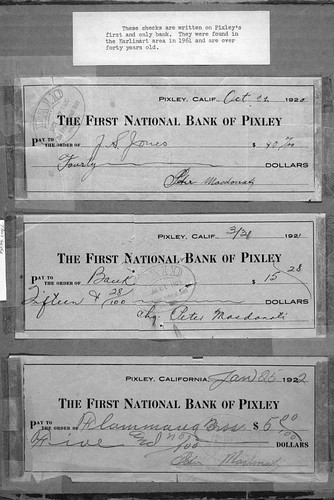 These checks are written on Pixley's
first and only bank. They were found in
the Earlimart area in 1961 and are over
forty years old.
PIXLEY, CALIF. Oct 1920
THE FIRST NATIONAL BANK OF PIXLEY
PAY TO THE ORDER OF J. S. Jones $ 40 no/100
Fourty DOLLARS
Peter Macdonald
PIXLEY, CALIF. 3/31 1921
THE FIRST NATIONAL BANK OF PIXLEY
PAY TO THE ORDER OF Bank $ 15 28
Fifteen & 28/100 DOLLARS
Chg. Peter Macdonald
PIXLEY, CALIFORNIA, Jan 25 1922
THE FIRST NATIONAL BANK OF PIXLEY
PAY TO THE ORDER OF Bros $ 5 00/100
Five and no/100 DOLLARS
Peter Macdonald